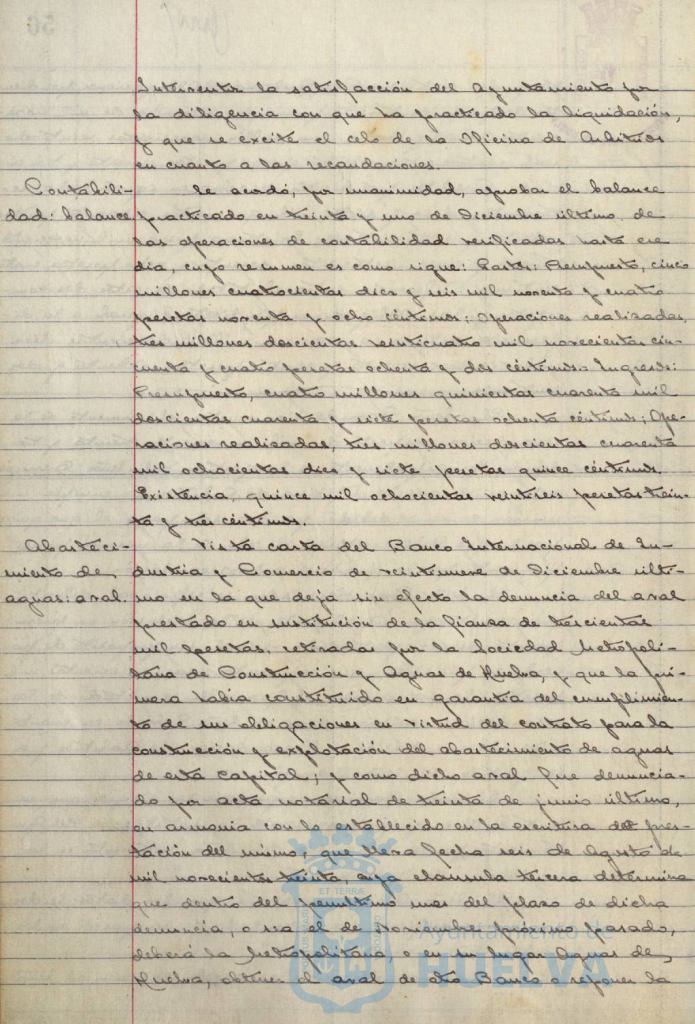 Interventor la satisfacción del Ayuntamiento por
la diligencia con que ha practicado la liquidación,
y que se excite el celo de la Oficina de Arbitrios
en cuanto a las recaudaciones.
Contabili-
dad: balance.
Se acordó, por unanimidad, aprobar el balance
practicado en treinta y uno de Diciembre último, de
las operaciones de contabilidad verificadas hasta ese
dia, cuyo resumen es como sigue: Gastos: Presupuesto, cinco
millones cuatrocientas diez y seis mil noventa y cuatro
pesetas noventa y ocho céntimos; Operaciones realizadas,
tres millones doscientas veinticuatro mil novecientas cin-
cuenta y cuatro pesetas ochenta y dos céntimos.- Ingresos:
Presupuesto, cuatro millones quinientas cuarenta mil
doscientas cuarenta y siete pesetas ochenta céntimos; Ope-
raciones realizadas, tres millones doscientas cuarenta
mil ochocientas diez y siete pesetas quince céntimos.
Existencia, quince mil ochocientas veintiseis pesetas trein-
ta y tres céntimos.
Abasteci-
miento de
aguas: aval.
Vista carta del Banco Internacional de In-
dustria y Comercio de veintinueve de Diciembre últi-
mo en la que deja sin efecto la denuncia del aval
prestado en sustitución de la fianza de trescientas
mil pesetas, retiradas por la Sociedad Metropoli-
tana de Construcción y Aguas de Huelva, y que la pri-
mera habia constituido en garantia del cumplimien-
to de sus obligaciones en virtud del contrato para la
construcción y explotación del abastecimiento de aguas
de esta Capital; y como dicho aval fue denuncia-
do por acta notarial de treinta de junio último,
en armonia con lo establecido en la escritura de pres-
tación del mismo, que lleva fecha seis de Agosto de
mil novecientos treinta, cuya clausula tercera determina
que dentro del penultimo mes del plazo de dicha
denuncia, o sea el de Noviembre próximo pasado,
deberá la Metropolitana, o en su lugar Aguas de
Huelva, obtener el aval de otro Banco o reponer la
ET TERRÆ
Ayuntamiento de
HUELVA